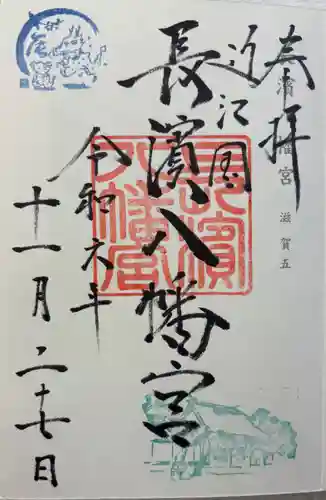 奉拝
濱
幡宮 滋賀五
近江国
長濱八幡宮
長濱
八幡宮
令和六年
十一月二十七日